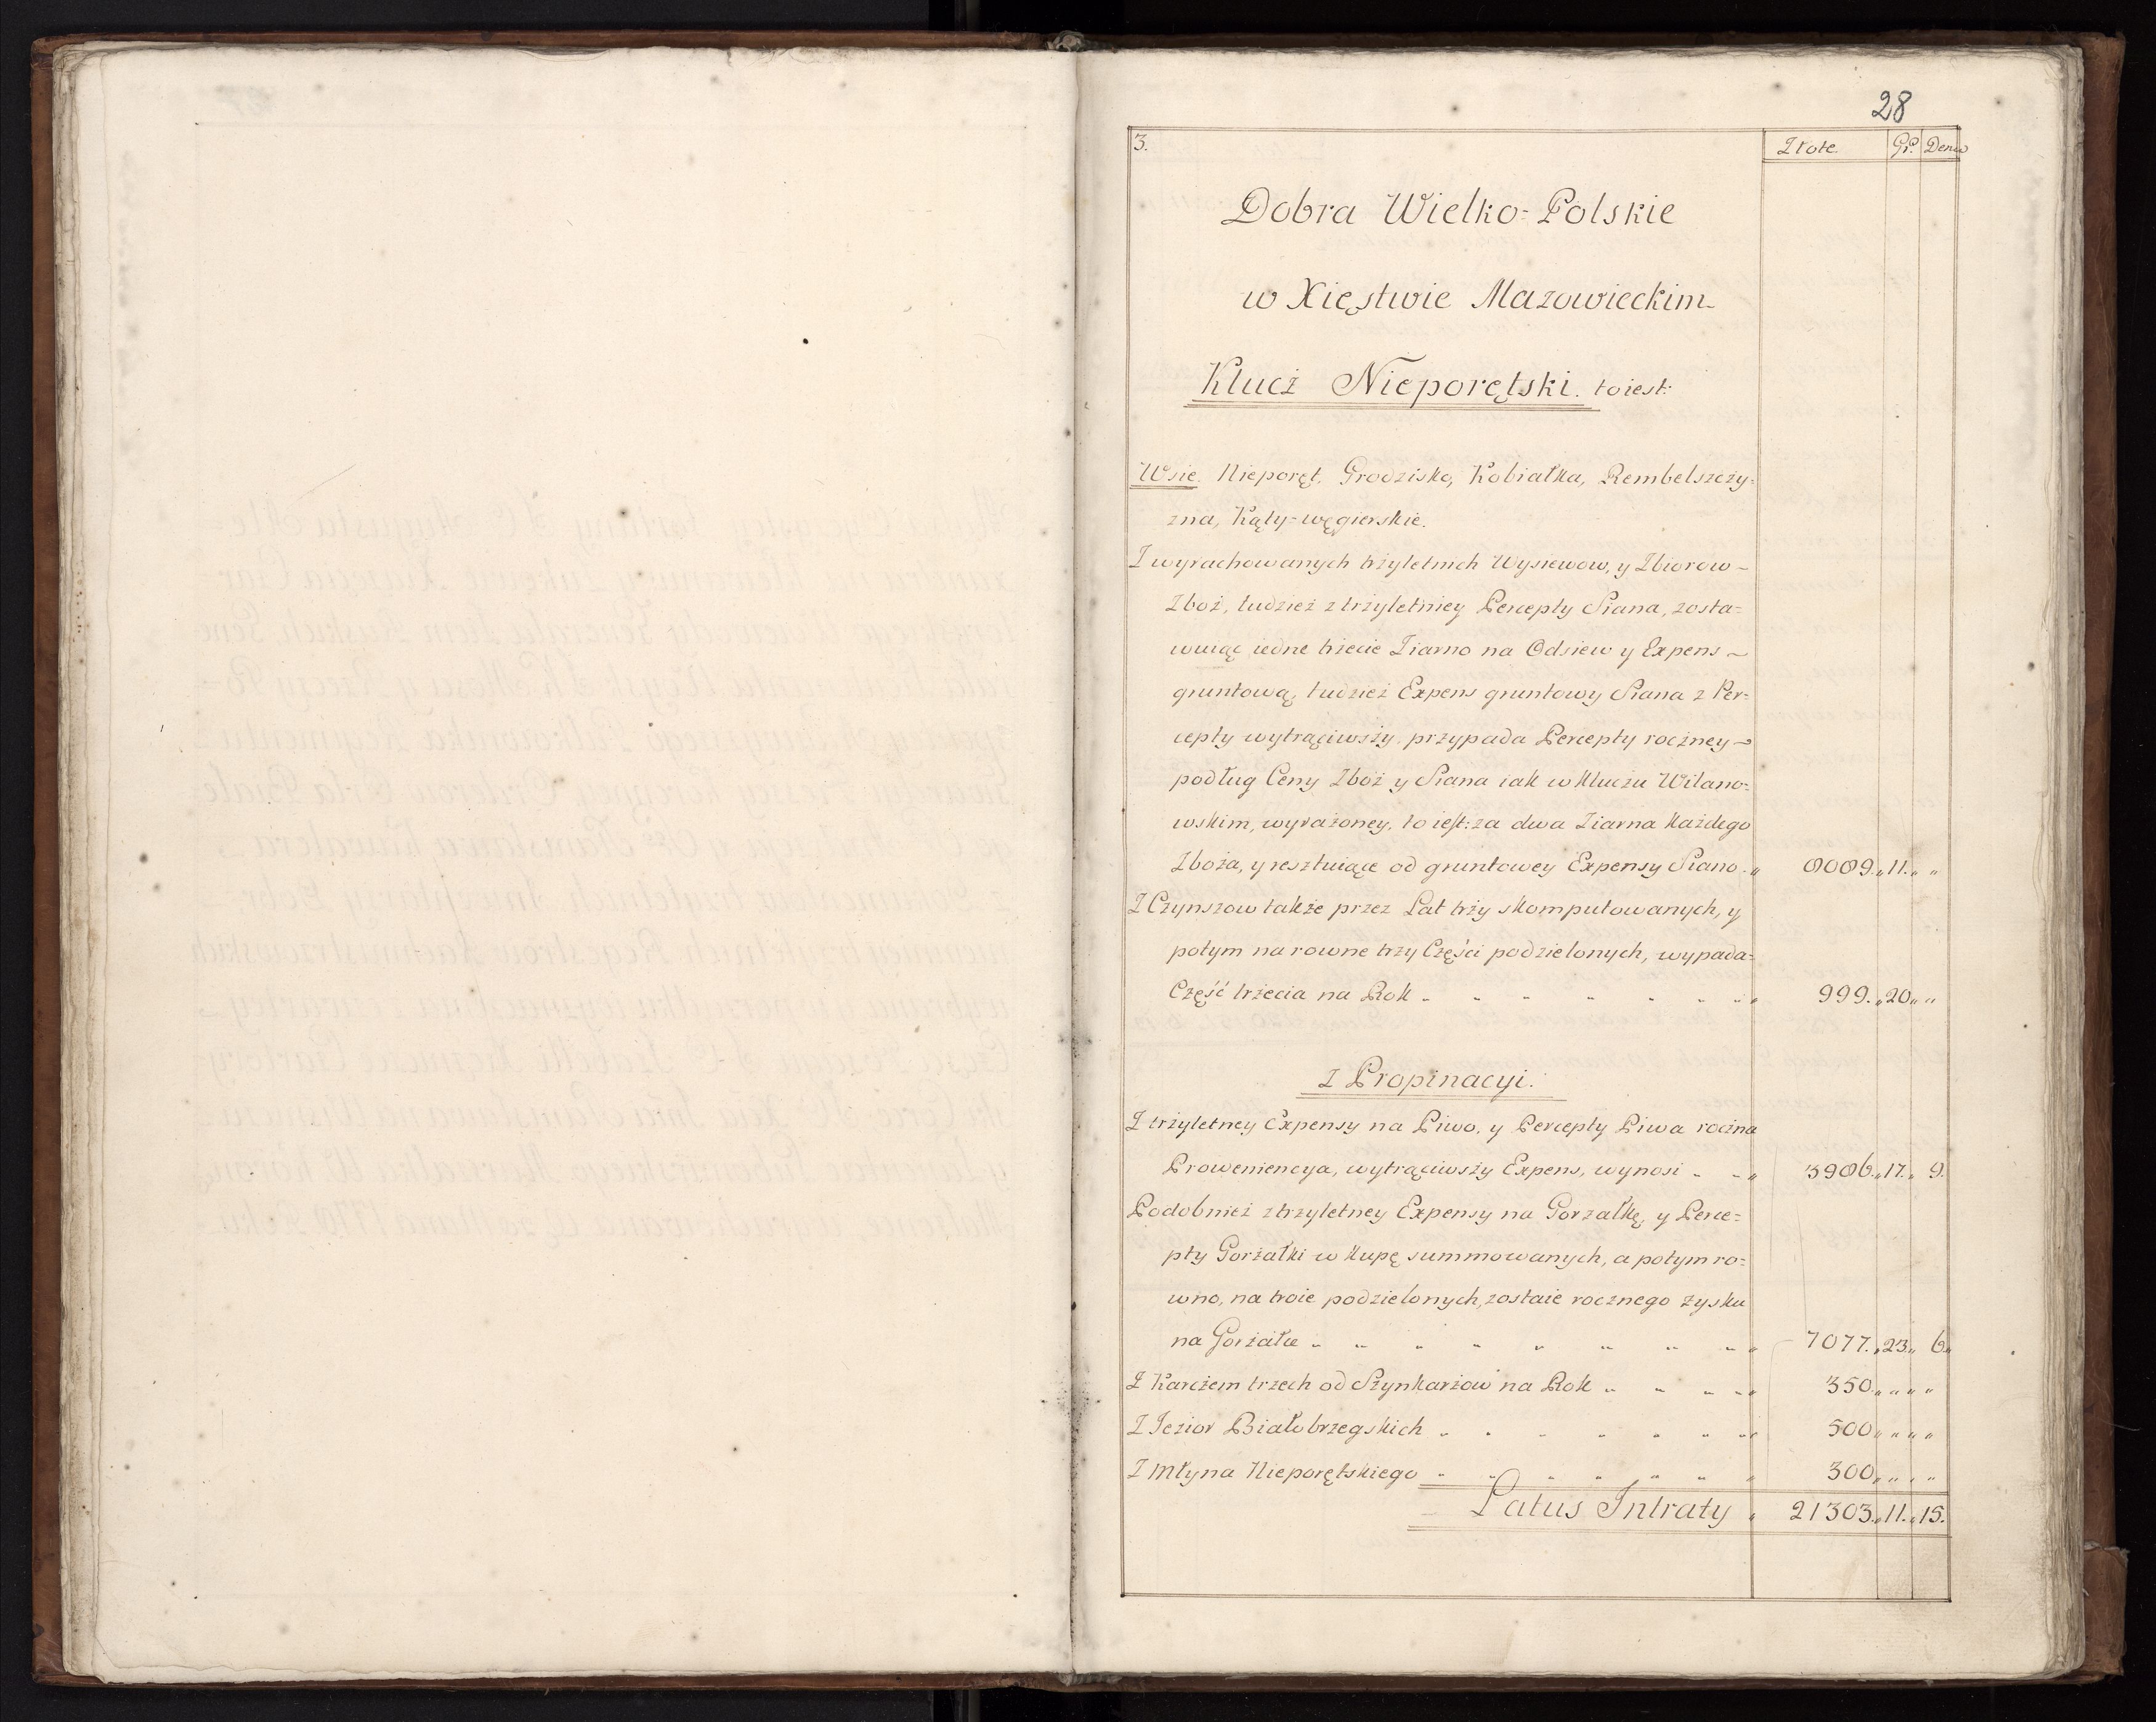 28
3. Złote. Gr. Denar
Dobra Wielko=Polskie
w Xięstwie Mazowieckim
Klucż Nieporętski. to iest:
Wsie. Nieporęt, Grodzisko, Kobiałka, Rembelszczy=
zna, Kąty=węgierskie.
Z wyrachowanych trzyletnich Wysiewow, y Zbiorow
Zboż, tudzież z trzyletniey Percepty Siana, zosta=
wuiąc iedne trzecie Ziarno na Odsiew y Expens
gruntową, tudzież Expens gruntowy Siana z Per=
cepty wytrąciwszy, przypada Percepty roczney
podług Ceny Zboż y Siana iak w Kluczu Wilano=
wskim, wyrażoney, to iest: za dwa Ziarna każdego
Zboża, y resztuiące od gruntowey Expensy Siano. 8089. 11.
Z Czynszow także przez Lat trzy skomputowanych, y
potym na rowne trzy Części podzielonych, wypada
Część trzecia na Rok 999. 20
Z Propinacyi.
Z trzyletney Expensy na Piwo, y Percepty Piwa roczna
Proweniencya, wytrąciwszy Expens, wynosi 3986. 17. 9.
Podobnież z trzyletney Expensy na Gorzałkę, y Perce=
pty Gorzałki w kupę summowanych, a potym ro=
wno, na troie podzielonych, zostaie rocznego zysku
na Gorzałce 7077. 23. 6
Z Karczem trzech od Szynkarzow na Rok 350
Z Jezior Białobrzegskich 500
Z Młyna Nieporętskiego 300
Latus Intraty 21303. 11. 15.